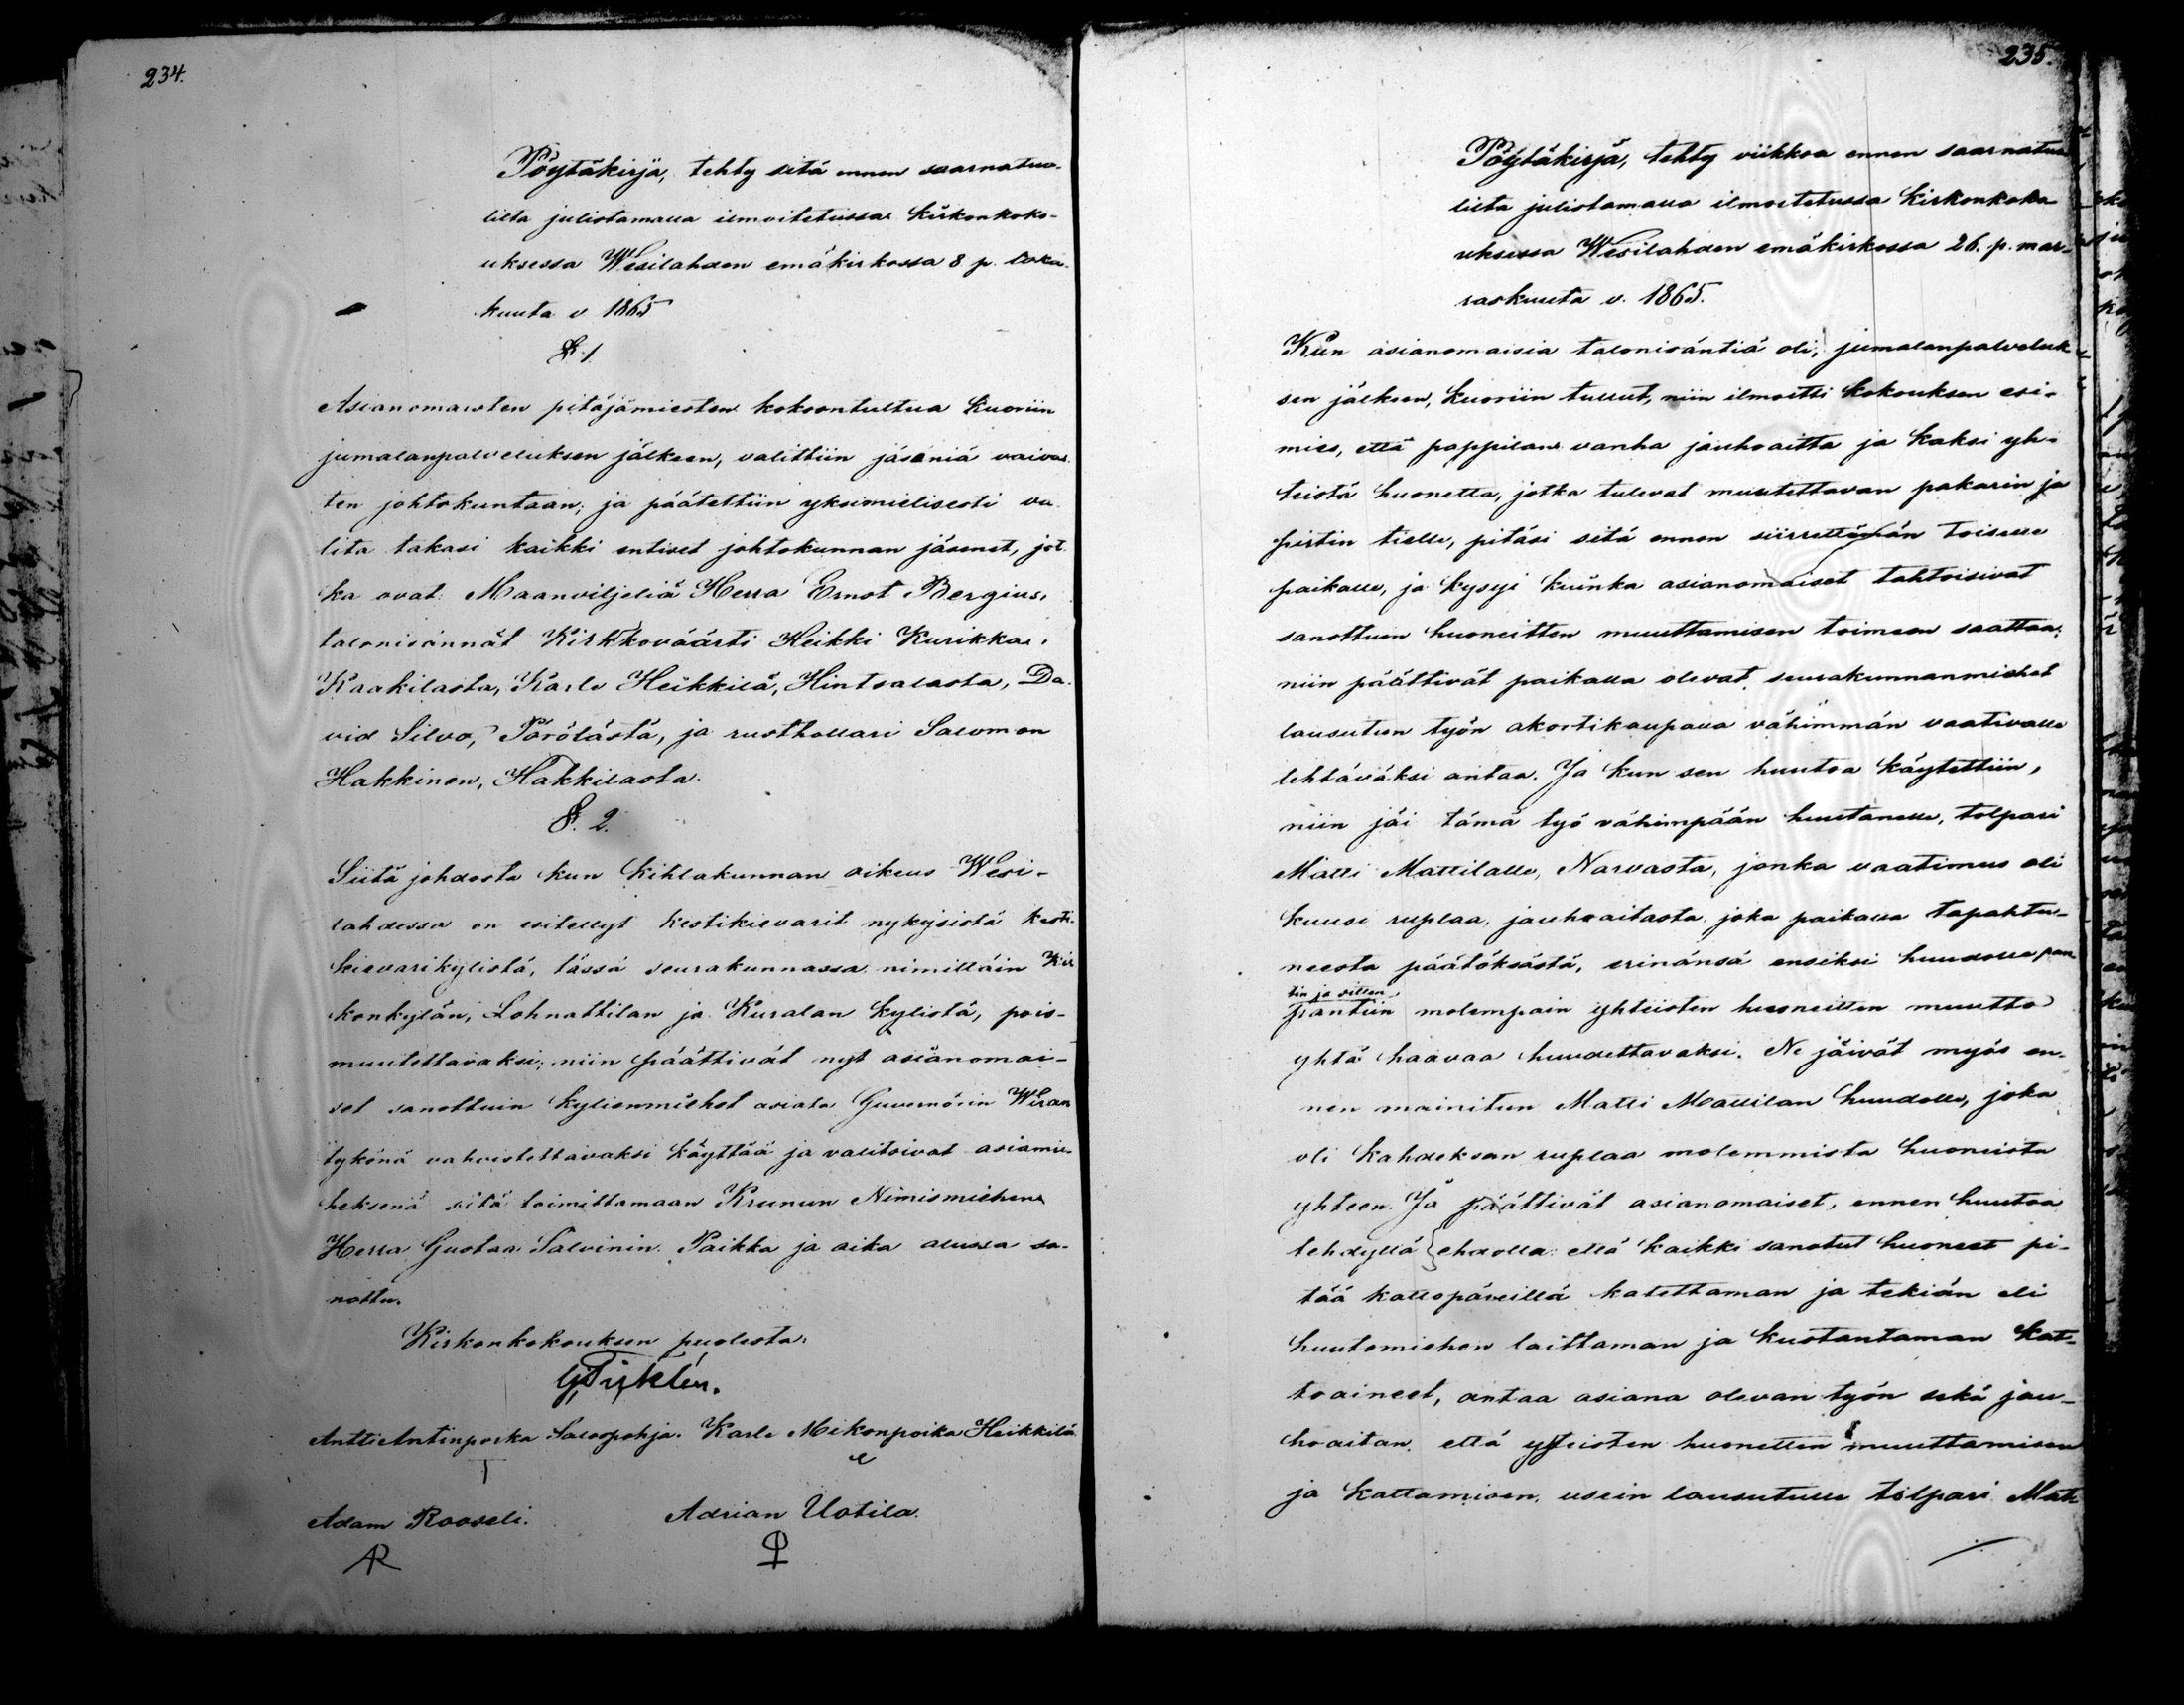 234.
Pöytäkirja, tehty sitä ennen saarnatuo-
lilta julistamalla ilmoitetussa Kirkonkoko-
uksessa Wesilahden emäkirkossa 8 p. loka-
kuuta v. 1865
§. 1.
Asianomaisten pitäjämiesten kokoontultua Kuoriin
jumalanpalveluksen jälkeen, valittiin jäseniä vaivas-
ten johtokuntaan; ja päätettiin yksimielisesti va-
lita takasi kaikki entiset johtokunnan jäsenet, jot-
ka ovat: Maanviljeliä Herra Ernst Bergius,
talonisännät Kirkkoväärti Heikki Kurikka,
Kaakilasta, Karle Heikkilä, Hintsalasta, Da-
vid Silvo, Pörölästä, ja rusthollari Salomon
Hakkinen, Hakkilasta.
§. 2.
Siitä johdosta kun Kihlakunnan oikeus Wesi-
lahdessa on esitellyt Kestikievarit nykyisistä kesti-
kievarikylistä, tässä seurakunnassa nimittäin Kir-
konkylän, Lohnattilan ja Kuralan Kylistä, pois-
muutettavaksi; niin päättivät nyt asianomai-
set sanottuin Kylienmiehet asiata Guvernörin Wiran
tykönä vahvistettavaksi Käyttää ja valitsivat asiamie-
heksenä sitä toimittamaan Kruunun Nimismiehen
Herra Gustaa Salvinin. Paikka ja aika alussa sa-
nottu.
Kirkonkokouksen puolesta:
Antti Antinpoika Salospohja. Karle Mikonpoika Heikkilä
Adam Rooseli. Adrian Uotila.
AR
235.
Pöytäkirja, tehty viikkoa ennen saarnatuo-
lilta julistamalla ilmoitetussa Kirkonkoko-
uksessa Wesilahden emäkirkossa 26. p. mar-
raskuuta v. 1865.
Kun asianomaisia talonisäntiä oli, jumalanpalveluk-
sen jälkeen, Kuoriin tullut, niin ilmoitti Kokouksen esi-
mies, että pappilan vanha jauhoaitta ja kaksi yh-
teistä huonetta, jotka tulevat muutettavan pakarin ja
pirtin tielle, pitäsi sitä ennen siirrettämän toiselle
paikalle, ja kysyi kuinka asianomaiset tahtoisivat
sanottuin huoneitten muuttamisen toimeen saattaa;
niin päättivät paikalla olevat seurakunnanmiehet
lausutun työn akortikaupalla vähimmän vaativalle
tehtäväksi antaa. Ja kun sen huutoa käytettiin,
niin jäi tämä työ vähimpään huutanelle, tolpari
Matti Mattilalle, Narvasta, jonka vaatimus oli
kuusi ruplaa, jauhoaitasta, joka paikalla tapahtu-
neesta päätöksestä, erinänsä ensiksi huudolle pan-
tin ja sitten
pantiin molempain yhteisten huoneitten muutto
yhtä haavaa huudettavaksi. Ne jäivät myös en-
nen mainitun Matti Mattilan huudolle, joka
oli kahdeksan ruplaa molemmista huoneista
yhteen. Ja päättivät asianomaiset, ennen huutoa
tehdyllä ehdolla: että kaikki sanotut huoneet pi-
tää kattopäreillä katettaman ja tekiän eli
huutomiehen laittaman ja kustantaman kat-
toaineet, antaa asiana olevan työn sekä jau-
hoaitan että yhteisten huonetten muuttamisen
ja kattamisen, usein lausutulle tolpari Mat-